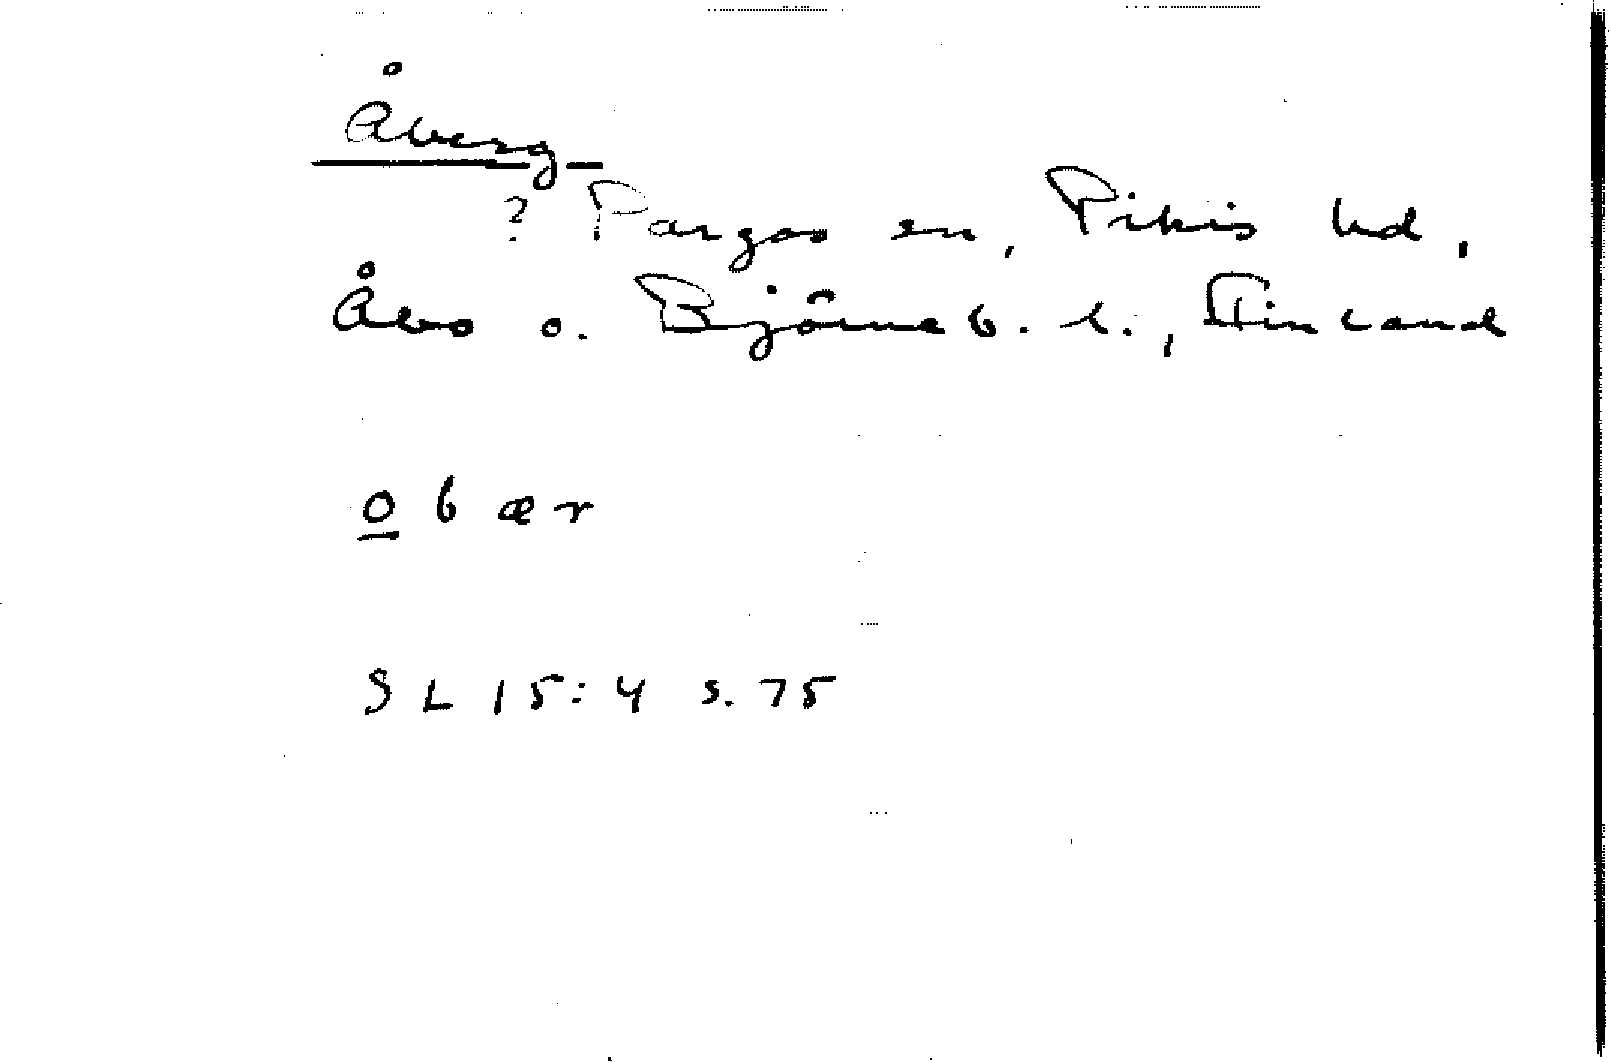 Åberg
? Pargas sn, Pikis hd,
Åbo o. Björneb. l., Finland
o̲ b æ r
SL 15:4 s. 75